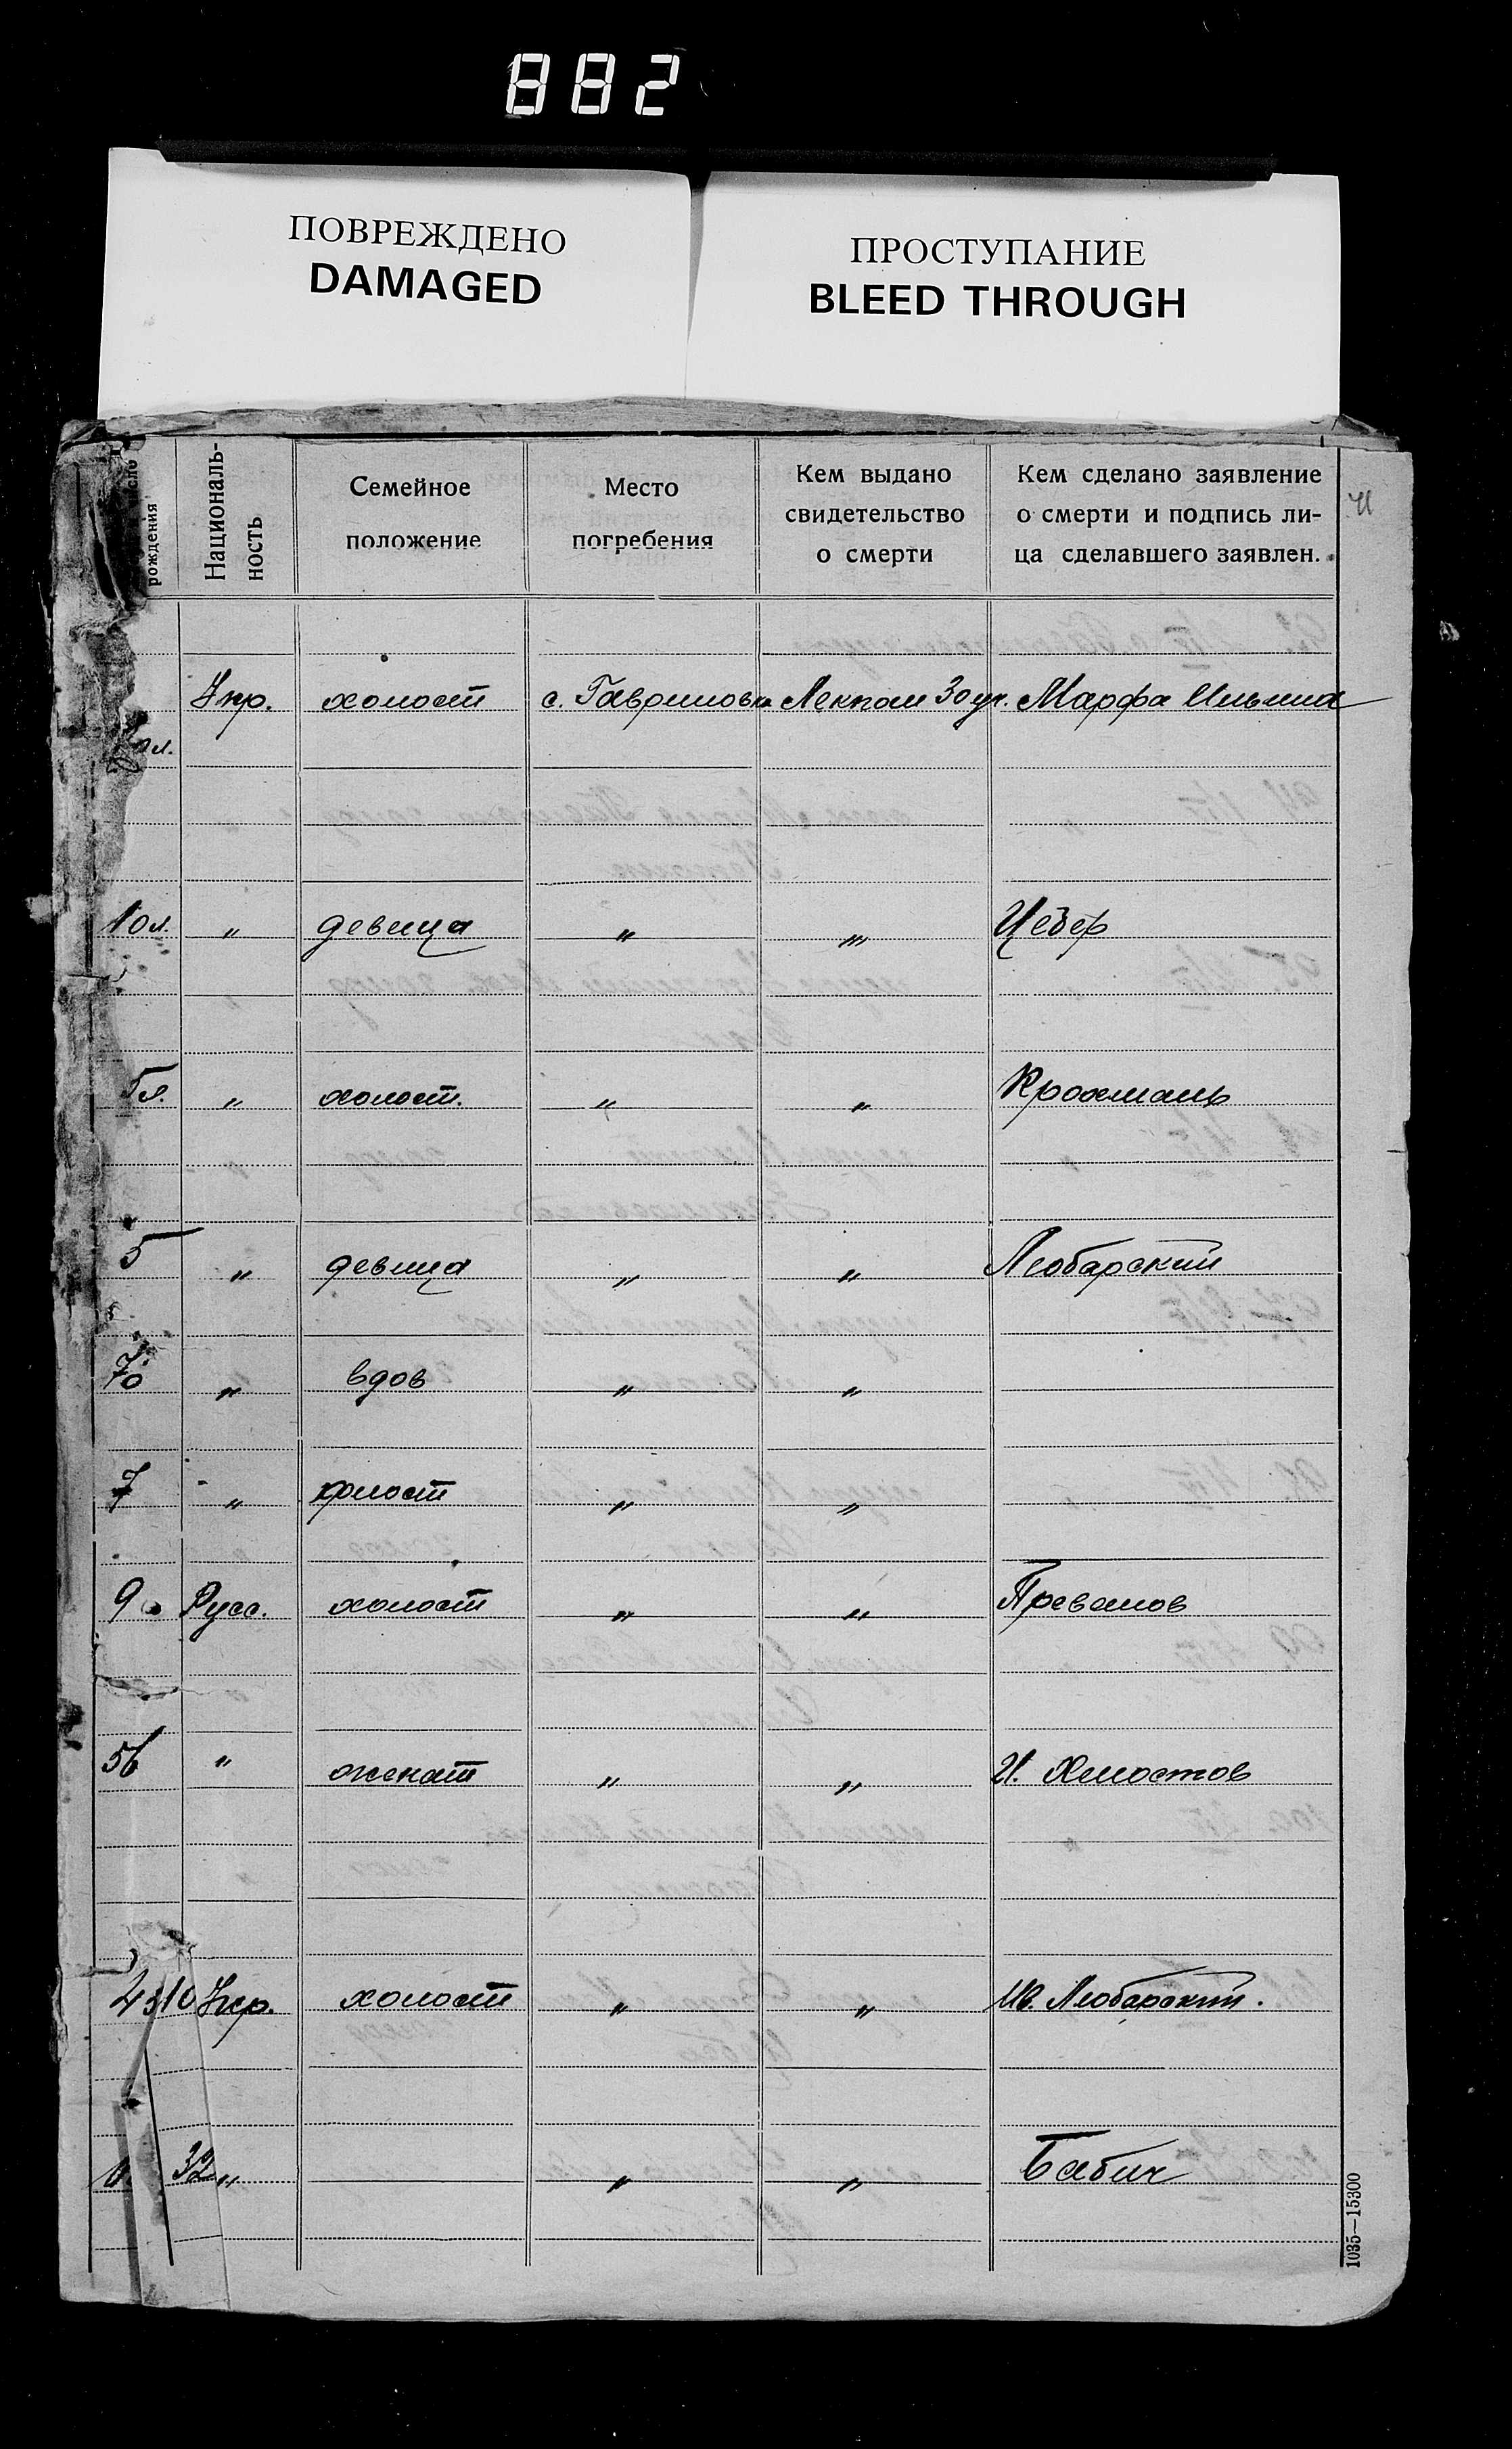 882
ПОВРЕЖДЕНО
DAMAGED
ПРОСТУПАНИЕ
BLEED THROUGH
рождения
Националь-
ность
Семейное
положение
Место
погребения
Кем выдано
свидетельство
о смерти
Кем сделано заявление
о смерти и подпись ли-
ца сделавшего заявлен.
Укр. холост с. Гавриловка Лекпом 30 уч. Марфа Ильина
10 л. " девица " " Цебер
5 л. " холост. " " Крохмаль
5 " девица " " Любарский
70 " вдов " "
7 " холост " "
9 Русс. холост " "
56 " женат " " И. Хвостов
Укр. холост " " Ив. Любарский.
32 " " " Бабич
1035—15300